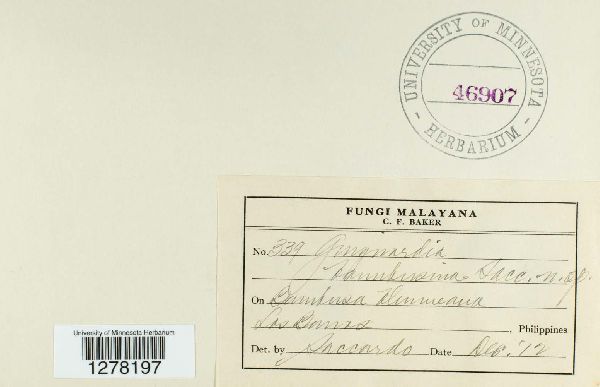 UNIVERSITY OF MINNESOTA
46907
- HERBARIUM -
FUNGI MALAYANA
C. F. BAKER
No. 339
Sacc. n. sp.
On Bambusa Blumeana
Los Banos, Philippines
Det. by Saccardo Date Dec. '12
University of Minnesota Herbarium
1278197